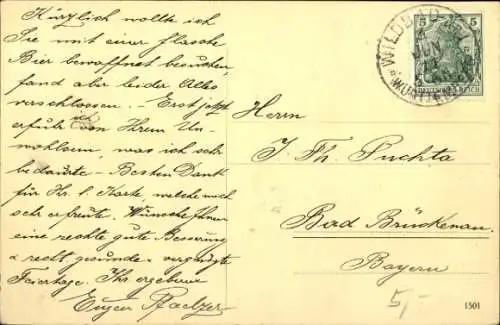 Kürzlich wollte ich
Sie mit einer Flasche
Bier bewaffnet besuchen,
fand aber leider Alles
verschlossen. Erst jetzt
erfuhr ich von Ihrem Un-
wohlsein, was ich sehr
bedaure. Besten Dank
für Ihr. l. Karte, welche mich
sehr erfreute. Wünsche Ihnen
eine rechte gute Besserung
& recht gesunde & vergnügte
Feiertage. Ihr ergebener
Eugen
Herrn
J. Th. Puchta
Bad Brückenau.
Bayern
5,-
1501
5 5
DEUTSCHES REICH
WILDBAD
JUN